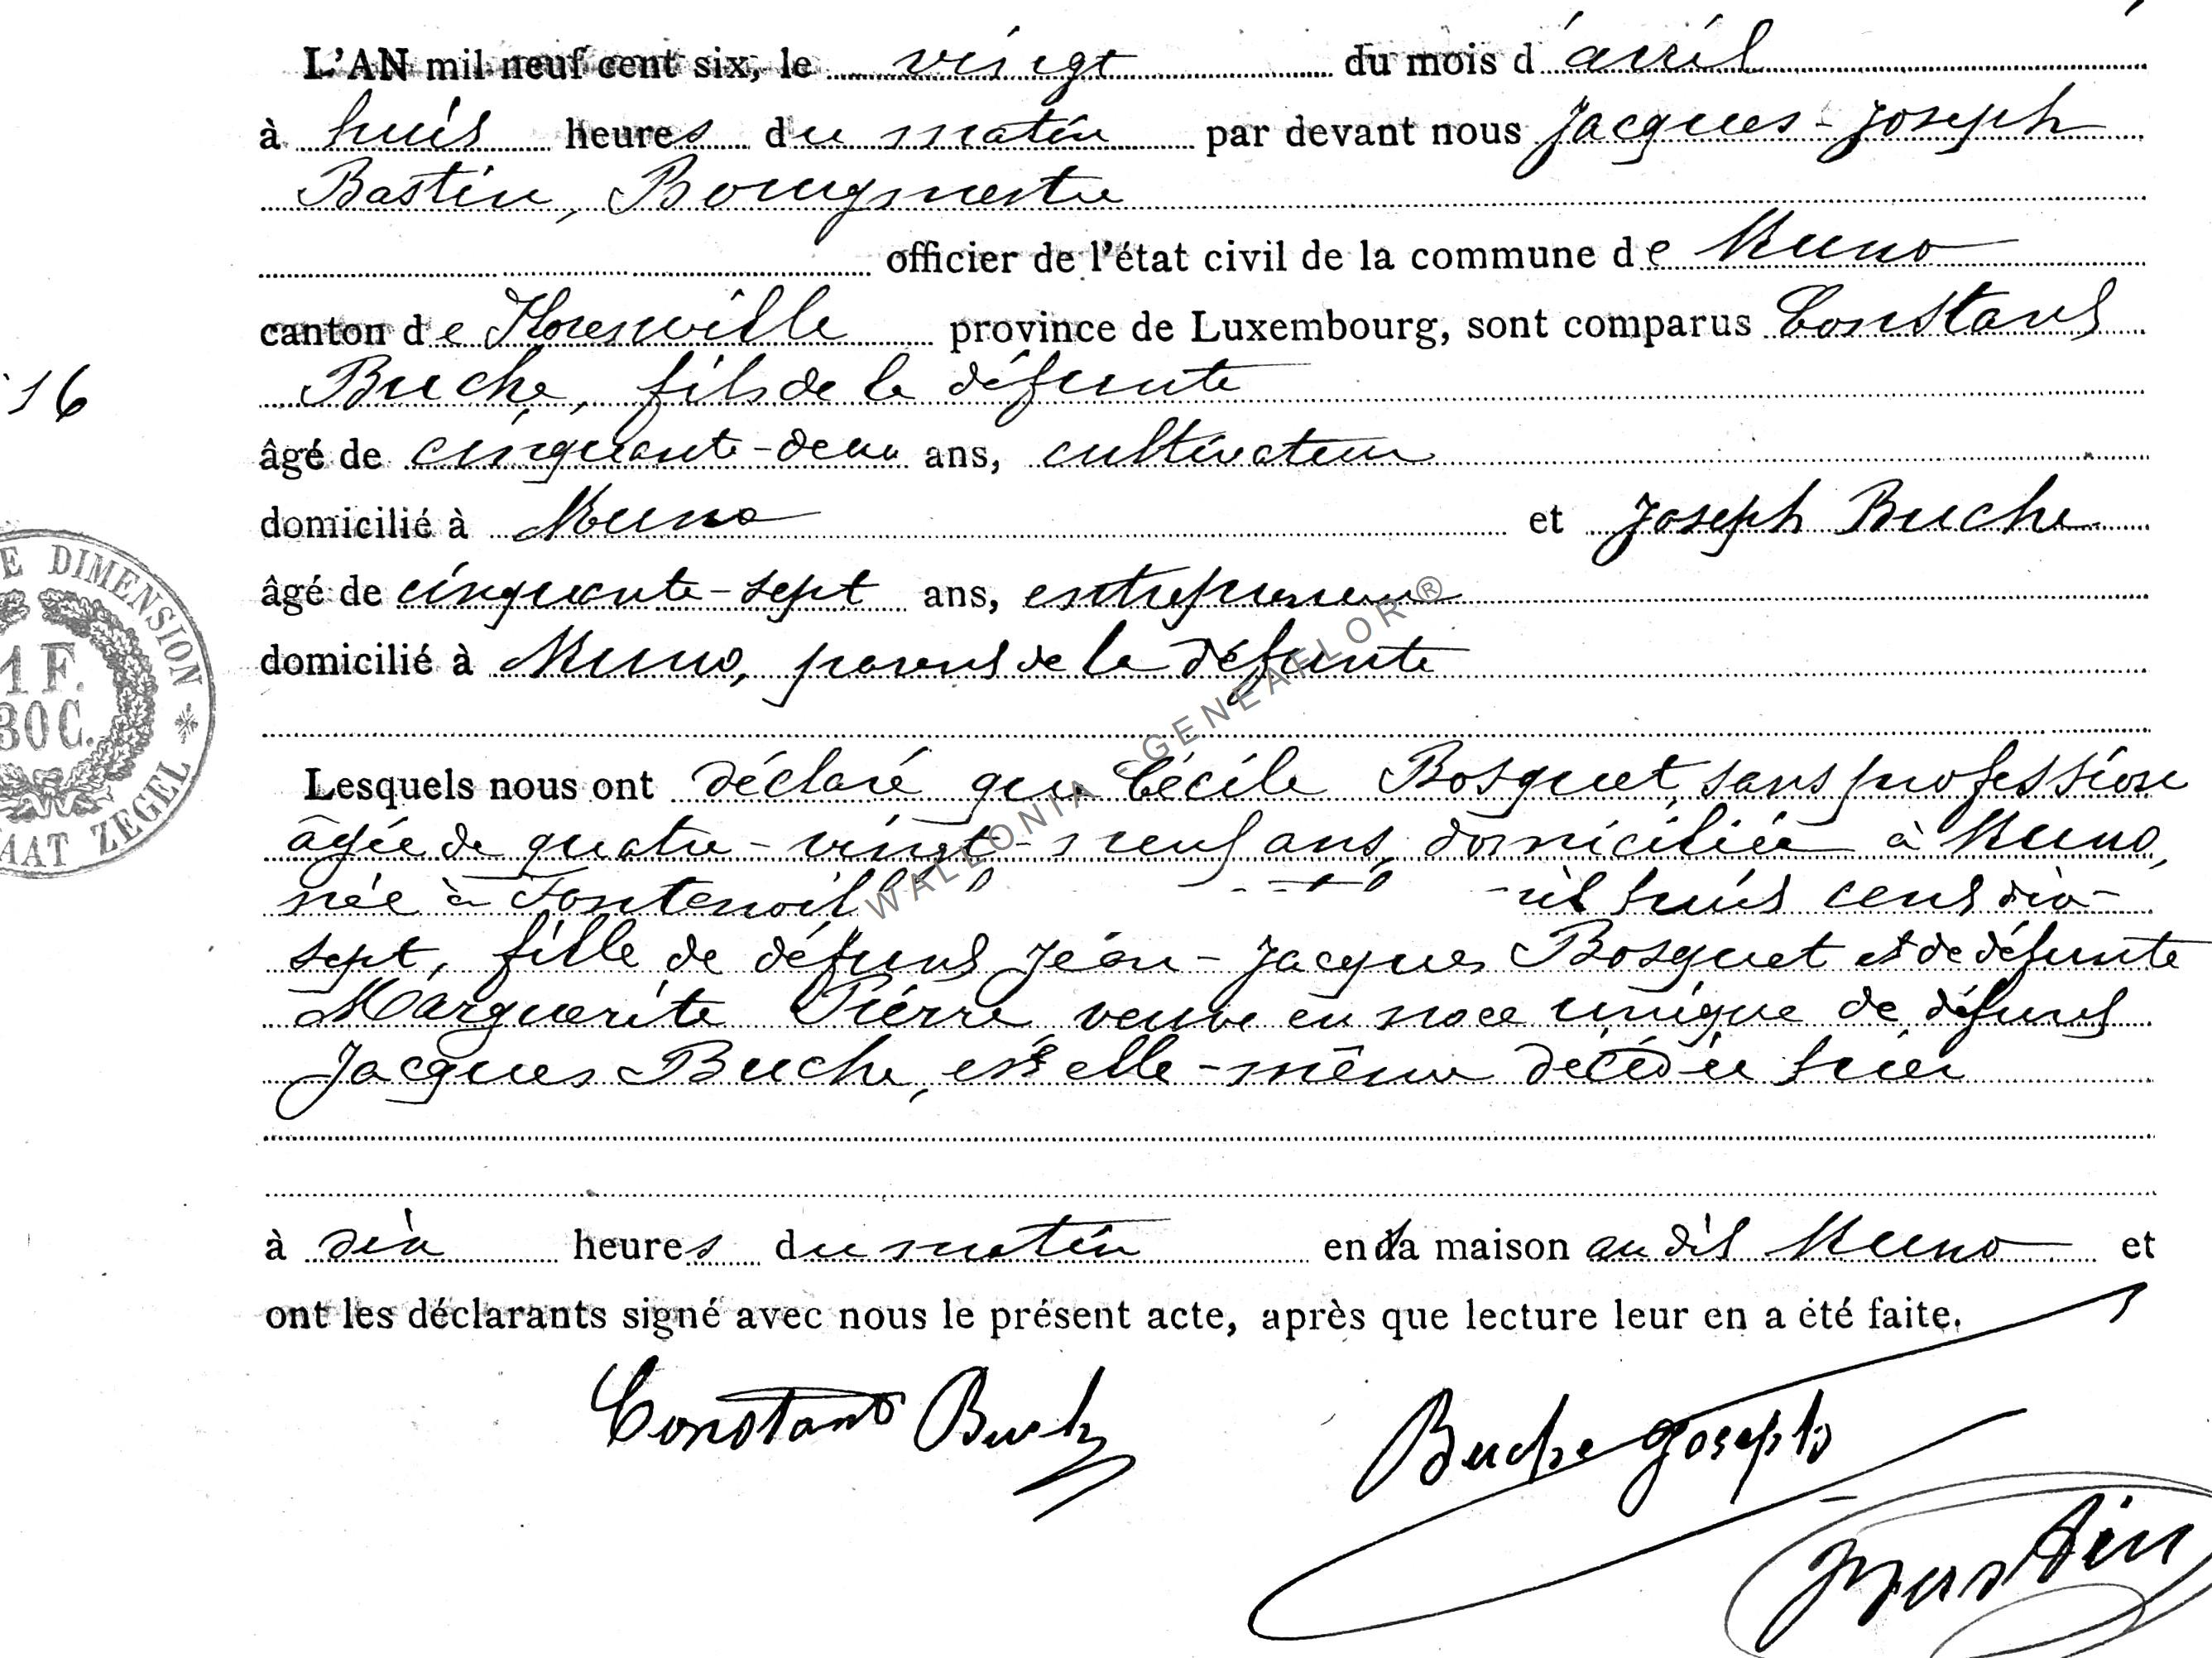 L'AN mil neuf cent six, le vingt du mois d'avril
à huit heures du matin par devant nous Jacques-Joseph
Bastin, Bourgmestre
officier de l'état civil de la commune de Muno
canton de Florenville province de Luxembourg, sont comparus Constant
Buche, fils de la défunte
16
âgé de cinquante-deux ans, cultivateur
domicilié à Muno et Joseph Buche
âgé de cinquante-sept ans, entrepreneur
domicilié à Muno, parent de la défunte
E DIMENSION
1 F.
30 C.
AAT ZEGEL
WALLONIA - GENEAFLOR ®
Lesquels nous ont déclaré que Cécile Bosquet, sans profession
âgée de quatre-vingt-neuf ans, domiciliée à Muno,
née à Fontenoille huit cent dix-
sept, fille de défunt Jean-Jacques Bosquet et de défunte
Marguerite Pierre, veuve en noce unique de défunt
Jacques Buche, est elle-même décédée hier
à dix heures du matin en la maison au dit Muno et
ont les déclarants signé avec nous le présent acte, après que lecture leur en a été faite.
Constant Buche
Buche Joseph
JJBastin